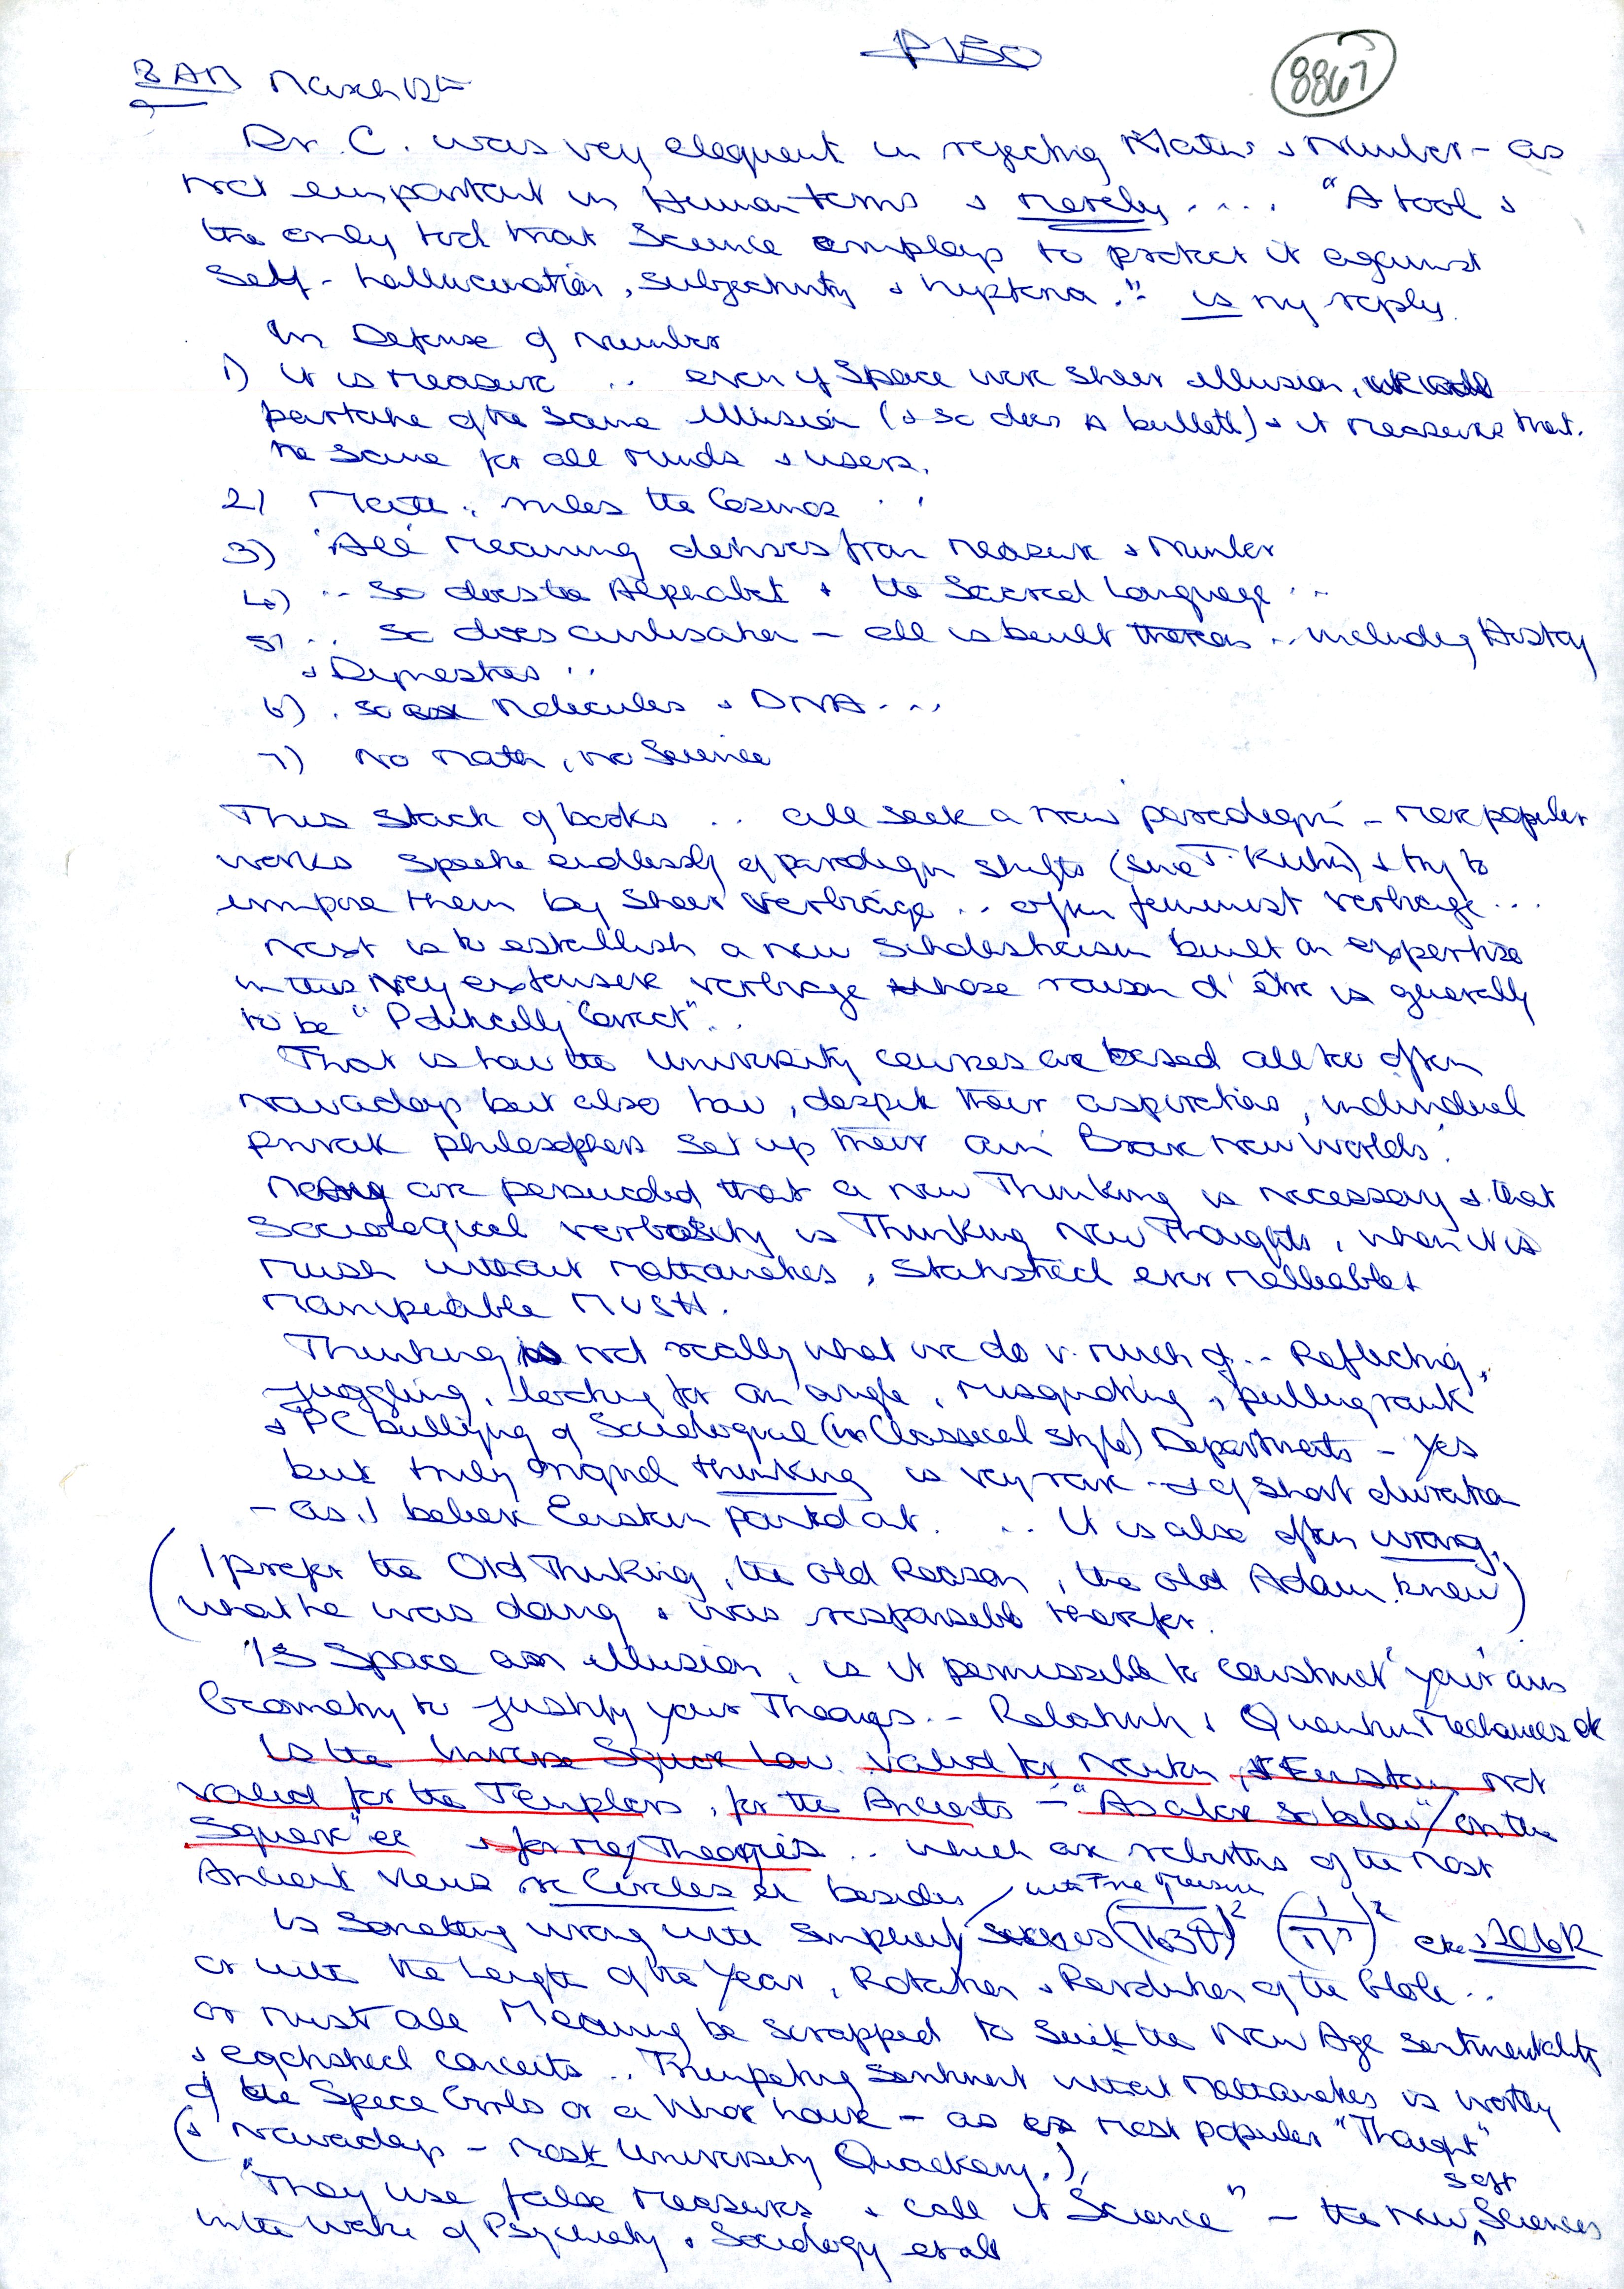 P150
8867
3 AM March 12th
Dr. C. was very eloquent in rejecting Maths & Number - as
not important in Human terms & merely .... "A tool &
the only tool that Science employs to protect it against
Self-hallucination, subjectivity & hysteria." is my reply.
In Defense of Number
1) it is measure .. even if Space were sheer illusion, we all
partake of the same illusion (& so does a bullet) & it measures that.
the same for all minds & users.
2) Math .. rules the Cosmos ..
3) 'All' Meaning derives from measure & Number
4) .. So does the Alphabet & the Sacred Language ...
5) .. So does civilisation - all is built thereon .. including History
& Dynasties ..
6) . so are Molecules & DNA ...
7) No math, no Science
This stack of books .. all seek a new paradigm - more popular
works speake endlessly of paradigm shifts (since T. Kuhn) & try to
impose them by sheer verbiage .. often feminist verbiage ...
Next is to establish a new Scholasticism built on expertise
in this very extensive verbiage whose raison d'être is generally
to be "Politically Correct" ..
That is how the University courses are based all too often
nowadays but also how, despite their aspirations, individual
private philosophers set up their own 'Brave New Worlds'.
Many are persuaded that a new Thinking is necessary & that
Sociological verbosity is Thinking New Thoughts, when it is
mush without mathematics, Statistical ever malleable &
manipeable MUSH.
Thinking is not really what we do v. much of .. Reflecting,
juggling, looking for an angle, misquoting, "pulling rank"
& PC bullying of Sociological (in Classical Style) Departments - yes
but truly original thinking is very rare .. & of short duration
- as I believe Einstein pointed out. .. It is also often wrong.
(I prefer the Old Thinking, the old Reason, the old Adam knew)
what he was doing & was responsible therefor.
Is Space an illusion, is it permissible to construct 'your' own
Geometry to justify your Theories .. Relativity & Quantum Mechanics etc
Is the Inverse Square Law valid for Newton, & Einstein not
valid for the Templars, for the Ancients - "As above so below"/"on the
Square" etc & for my Theories .. which are rebirths of the most
Ancient views re Circles etc besides
with Fine Measure
Is something wrong with simplicity / (1/√(63θ))² (1/π)² etc
or with the Length of the Year, Rotation & Revolution of the Globe ..
or must all Meaning be scrapped to suit the New Age sentimentality
& egotistical conceits .. Trumpeting Sentiment without mathematics is worthy
of the Spice Girls or a Whore house - as is most popular "Thought"
(& nowadays - most University Quackery.)
"They use false measures & call it Science" - the New soft Sciences
in the wake of Psychiatry & Sociology et alt